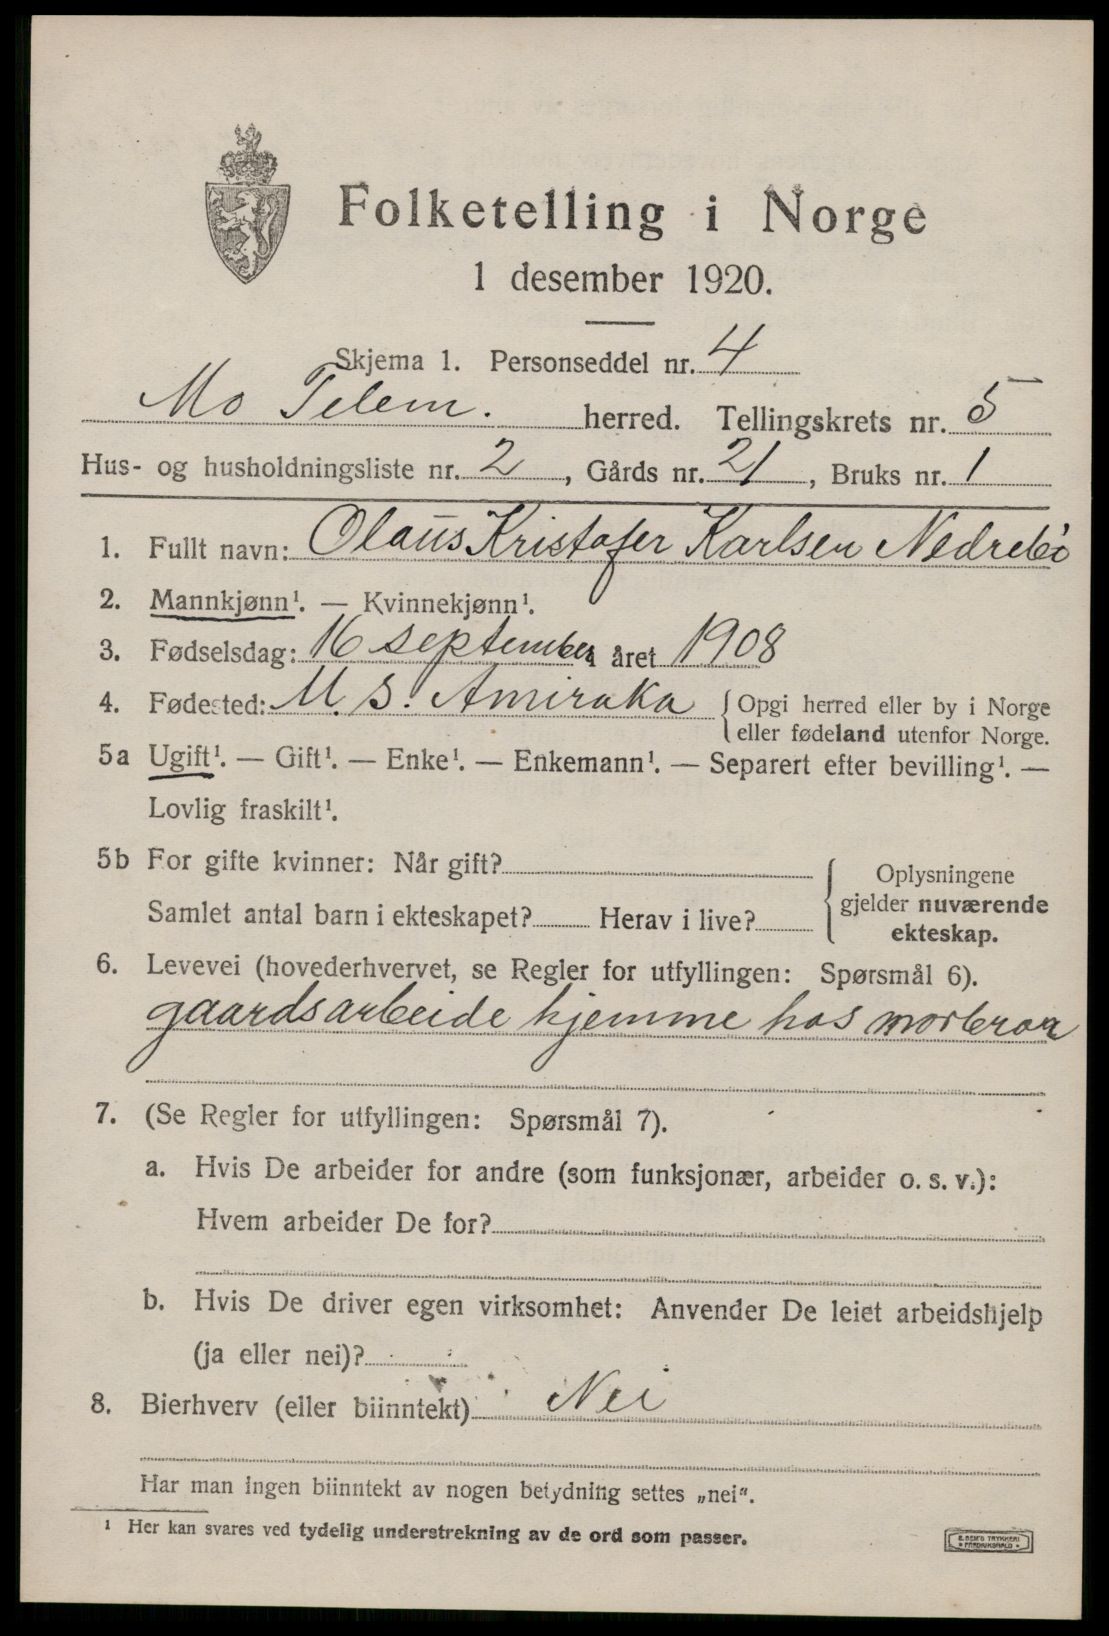 Folketelling i Norge
1 desember 1920.
Skjema 1. Personseddel nr. 4
Mo Telem. herred. Tellingskrets nr. 5
Hus- og husholdningsliste nr. 2, Gårds nr. 21, Bruks nr. 1
1. Fullt navn: Olaus Kristofer Karlsen Nedrebö
2. Mannkjønn¹. — Kvinnekjønn¹.
3. Fødselsdag: 16 september i året 1908
4. Fødested: U. S. Amiraka { Opgi herred eller by i Norge
eller fødeland utenfor Norge.
5a Ugift¹. — Gift¹. — Enke¹. — Enkemann¹. — Separert efter bevilling¹. —
Lovlig fraskilt¹.
5b For gifte kvinner: Når gift?
Samlet antal barn i ekteskapet? Herav i live?
{ Oplysningene
gjelder nuværende
ekteskap.
6. Levevei (hovederhvervet, se Regler for utfyllingen: Spørsmål 6).
gaardsarbeide hjemme hos morbror
7. (Se Regler for utfyllingen: Spørsmål 7).
a. Hvis De arbeider for andre (som funksjonær, arbeider o. s. v.):
Hvem arbeider De for?
b. Hvis De driver egen virksomhet: Anvender De leiet arbeidshjelp
(ja eller nei)?
8. Bierhverv (eller biinntekt) Nei
Har man ingen biinntekt av nogen betydning settes „nei“.
¹ Her kan svares ved tydelig understrekning av de ord som passer.
E. SEM'S TRYKKERI
FREDRIKSHALD